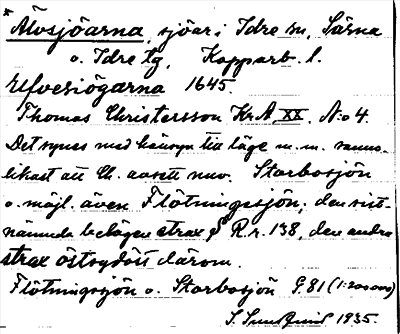 * Älvsjöarna, sjöar i Idre sn, Särna
o. Idre tg, Kopparb. l.
Elfvesiögarna 1645.
Thomas Christersson Kr. A. XX. N:o 4.
Det synes med hänsyn till läge m.m. sanno-
likast att Ch. avsett nuv. Storbosjön
o. möjl. även Flötningssjön; den sist-
nämnda belägen strax på R.r. 138, den andra
strax östsydöst därom.
Flötningssjön o. Storbosjön G 81 (1:200000)
1935.